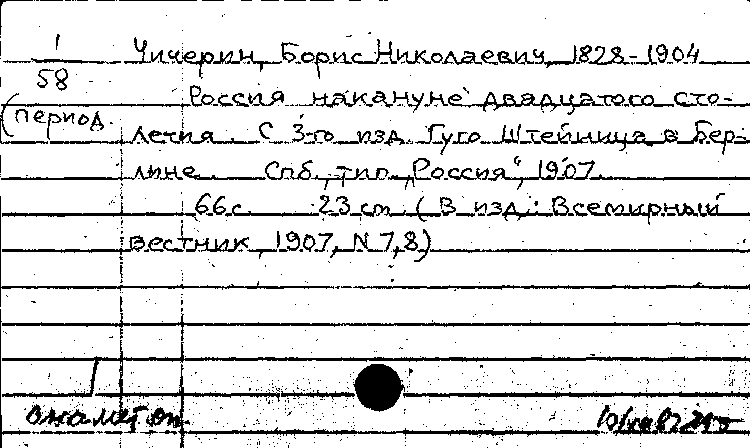 1
58
(период.
Чичерин, Борис Николаевич, 1828-1904
Россия накануне двадцатого сто-
летия. С 3-го изд. Гуго Штейница в Бер-
лине. Спб., тип. „Россия“, 1907.
66 с. 23 cm (В изд.: Всемирный
вестник, 1907, N 7,8)